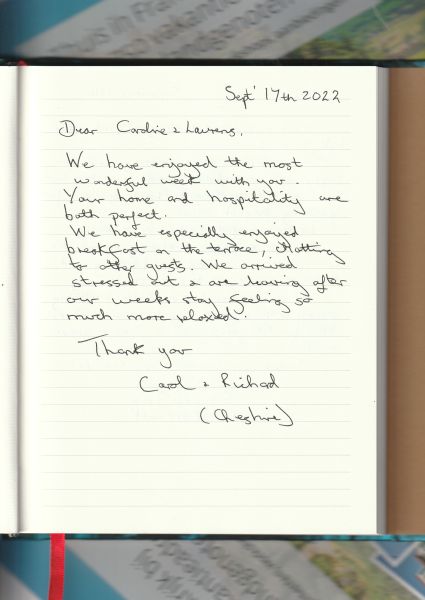 Thuis in Fra
Sept' 17th 2022
Dear Caroline & Laurens,
We have enjoyed the most
wonderful week with you.
Your home and hospitality are
both perfect.
We have especially enjoyed
breakfast on the terrace, chatting
to other guests. We arrived
stressed out & are leaving after
our weeks stay feeling so
much more relaxed.
Thank you
Carol & Richard
(Cheshire)